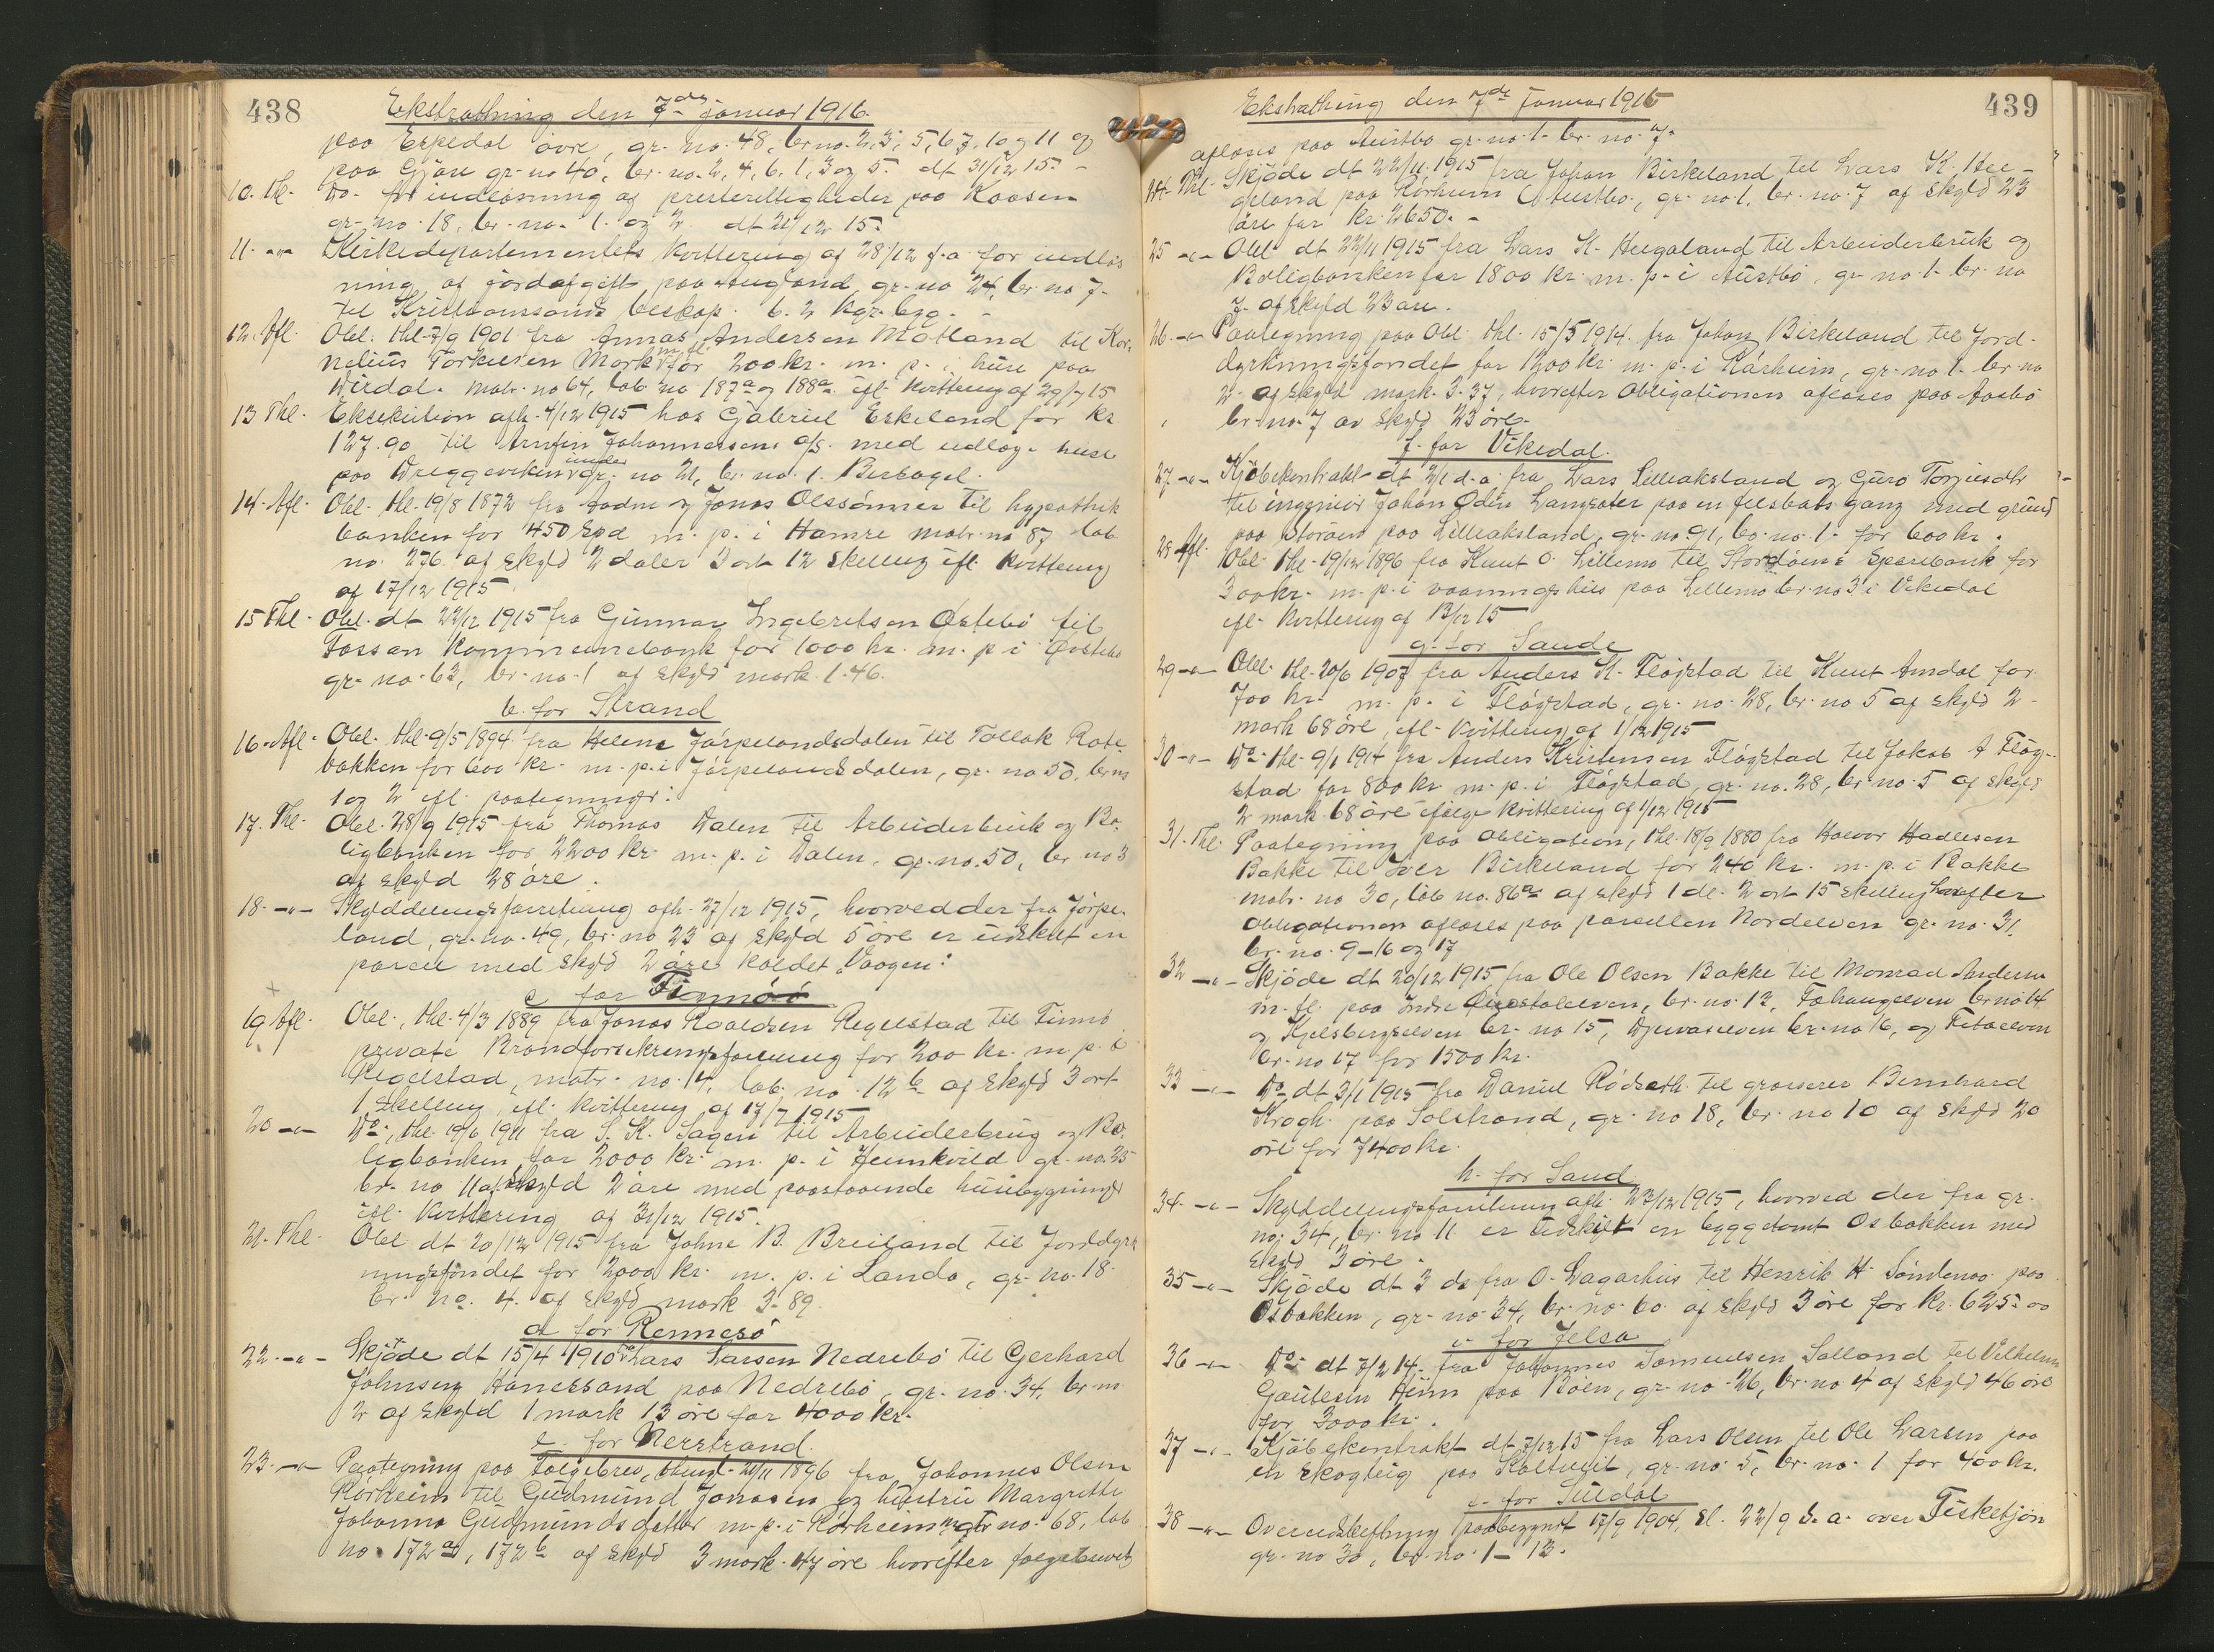 438
Ekstrathing den 7de januar 1916.
paa Espedal övre, gr. no. 48, br. no. 2, 3, 5, 6, 7, 10 og 11 og
paa Gjöse gr. no 40, br. no. 2, 4, 6. 1, 3 og 5. dt 31/12 15. -
10. Thl. Do. for indlösning af presterettigheder paa Kaasen
gr. no. 18, br. no. 1. og 2. dt 21/12 15.
11. -"- Kirkedepartementets kvittering af 28/12 f.a. for indlös
ning af jordafgift paa Augland, gr. no 24, br. no 7-
til Kristiansands beskop. 6. 2 kgr. byg. -
12. Afl. Obl. thl. 7/9 1901 fra Annas Andersen Motland til Kor-
nelius Torkelsen Mork m. fl. for 200 kr. m. p. i huse paa
Dirdal. matr. no 64, löb no 187a og 188a. ifl. kvittering af 29/7 15
13 Thl. Eksekution afh. 4/12 1915 hos Gabriel Eskeland for kr.
127.90 til Arnfin Johannessens a/s. med udlæg i huse
paa Dreggeviken under gr. no 21, br. no. 1. Bersagel.
14. Afl. Obl. thl. 19/8 1872 fra Aadne og Jonas Olssönner til hypothek
banken for 450 Spd m. p. i Hamre matr. no 87 löb
no. 276 af skyld 2 daler 3 ort 12 skelling ifl. kvittering
af 17/12 1915.
15 Thl. Obl. dt 22/12 1915 fra Gunnar Ingebretsen Östebö til
Fossan Kommunebank for 1000 kr. m. p. i Östebö
gr. no. 63, br. no. 1 af skyld mark 1.46.
b. for Strand
16. Afl. Obl. thl. 9/5 1894 fra Helene Jörpelandsdalen til Tollak Rote-
bakken for 600 kr. m. p. i Jörpelandsdalen, gr. no 50, br. no
1 og 2 ifl. paategninger.
17. Thl. Obl. 28/9 1915 fra Thomas Dalen til Arbeiderbruk og Bo-
ligbanken for 2200 kr. m. p. i Dalen, gr. no. 50, br. no 3
af skyld 28 öre.
18. -"- Skylddelingsforretning afh. 27/12 1915, hvorved der fra Jörpe-
land, gr. no. 49, br. no 23 af skyld 5 öre er utskilt en
parcel med skyld 2 öre kaldet "Vaagen".
c for Finnöi
19 Afl. Obl., thl. 4/3 1889 fra Jonas Roaldsen Regelstad til Finnö
private Brandforsikringsforening for 200 kr. m. p. i
Regelstad, matr. no. 14, löb. no. 12b af skyld 3 ort
1 skelling, ifl. kvittering af 17/7 1915
20 -"- Do., thl. 19/6 1911 fra S. K. Sagen til Arbeiderbrug og Bo-
ligbanken for 2000 kr. m. p. i Heimkvild gr. no. 25
br. no 11 af skyld 2 öre med paastaaende husebygninger
ifl. kvittering af 31/12 1915.
21. Thl. Obl dt 20/12 1915 fra Johne B. Breiland til Jorddyrk
ningsfondet for 2000 kr. m. p. i Landa, gr. no. 18.
br. no. 4. af skyld mark 3. 89.
d for Rennesö
22. -"- Skjöde dt 15/4 1910 fra Lars Larsen Nedrebö til Gerhard
Johnsen Hanessand paa Nedrebö, gr. no. 34, br. no
2 af skyld 1 mark 13 öre for 4000 kr.
e. for Nerstrand.
23. -"- Paategning paa Følgebrev, thingl. 21/11 1896 fra Johannes Olsen
Rörheim til Gudmund Jonasen og hustru Margrethe
Johanna Gudmundsdatter m. p. i Rörheim matr no. 68, löb
no. 172a, 172b af skyld 3 mark 47 öre hvorefter følgebrevet
439
Ekstrathing den 7de Januar 1915
aflöses paa Austbö gr. no. 1. br. no. 7.
24. Thl. Skjöde dt 22/11 1915 fra Johan Birkeland til Lars K. Hel-
geland paa Rörheim Austbö, gr. no. 1, br. no. 7 af skyld 23
öre for kr. 2650. -
25 -"- Obl dt 22/11 1915 fra Lars K. Helgaland til Arbeiderbruk og
Boligbanken for 1800 kr. m. p. i Austbö, gr. no. 1. br. no
7. af skyld 23 öre.
26. -"- Paategning paa Obl. thl. 15/5 1914. fra Johan Birkeland til Jord-
dyrkningsfondet for 1200 kr. m. p. i Rörheim, gr. no. 1. br. no
2. af skyld mark. 3.37, hvorefter Obligationen aflöses paa Aasbö
br. no. 7 av skyld 23 öre.
f. for Vikedal.
27 -"- Kjöbekontrakt dt 3/1 d.a. fra Lars Lilleaksland og Guro Torgiesdtr
til ingeniör Johan Odin Langsæter paa en felsbats gang med grund
paa Storaasen paa Lilleaksland, gr. no. 91, br. no. 1. for 600 kr.
28 Afl. Obl. thl. 19/12 1896 fra Knut O. Lillemo til Stordöens Sparebank for
300 kr. m. p. i vaaningshus paa Lillemo br. no 3 i Vikedal
ifl. kvittering af 13/12 15
g. for Saude
29 -"- Obl. thl. 20/6 1907 fra Anders K. Flögstad til Knut Amdal for
700 kr. m. p. i Flögstad, gr. no. 28, br. no 5 af skyld 2
mark 68 öre, ifl. kvittering af 1/12 1915
30 -"- Do. thl. 9/1 1914 fra Anders Kristensen Flögstad til Jakob A Flög-
stad for 800 kr m. p. i Flögstad, gr. no. 28, br. no. 5 af skyld
2 mark 68 öre ifölge kvittering af 1/12 1915
31. Thl. Paategning paa obligation, thl. 18/9 1880 fra Halvor Hadlesen
Bakke til Iver Birkeland for 240 kr. m. p. i Bakke
matr. no 30, löb no. 86a af skyld 1 dl. 2 ort 15 skelling hvorefter
obligationen aflöses paa parcellen Nordelven gr. no. 31.
br. no. 9-16 og 17
32 -"- Skjöde dt 20/12 1915 fra Ole Olsen Bakke til Monrad Andersen
m. fl. paa indre elven, br. no. 13, elven br no 14
og Kjelsbergselven br. no 15, elven br. no 16, og elven
br. no 17 for 1500 kr.
33 -"- Do. dt 3/1 1915 fra Daniel Rödseth til grosserer Bernhard
Krogh. paa Solstrand, gr. no 18, br. no 10 af skyld 20
öre for 7400 kr.
h. for Sand
34. -"- Skylddelingsforretning afh. 23/12 1915, hvorved der fra gr.
no. 34, br. no 11 er udskilt en byggetomt Osbakken med
skyld 3 öre.
35 -"- Skjöde dt 3 ds fra O. Lagarhus til Henrik H. Söndenaa paa
Osbakken, gr. no. 34, br. no. 60. af skyld 3 öre for kr. 625.00
i. for Jelsa
36 -"- Do. dt 7/2 14. fra Johannes Samuelsen Salland til Vilhelm
Gautesen Heim paa Böen, gr. no. 26, br. no 4 af skyld 46 öre
for 3000 kr.
37 -"- Kjöbekontrakt dt 7/12 15 fra Lars Olsen til Ole Larsen paa
en skogteig paa Kaltveit, gr. no. 5, br. no. 1 for 400 kr.
for Suldal
38 -"- Overudskiftning paabegynt 17/9 1904, sl. 22/9 s. a. over Fisketjön
gr. no 30, br. no. 1-13.